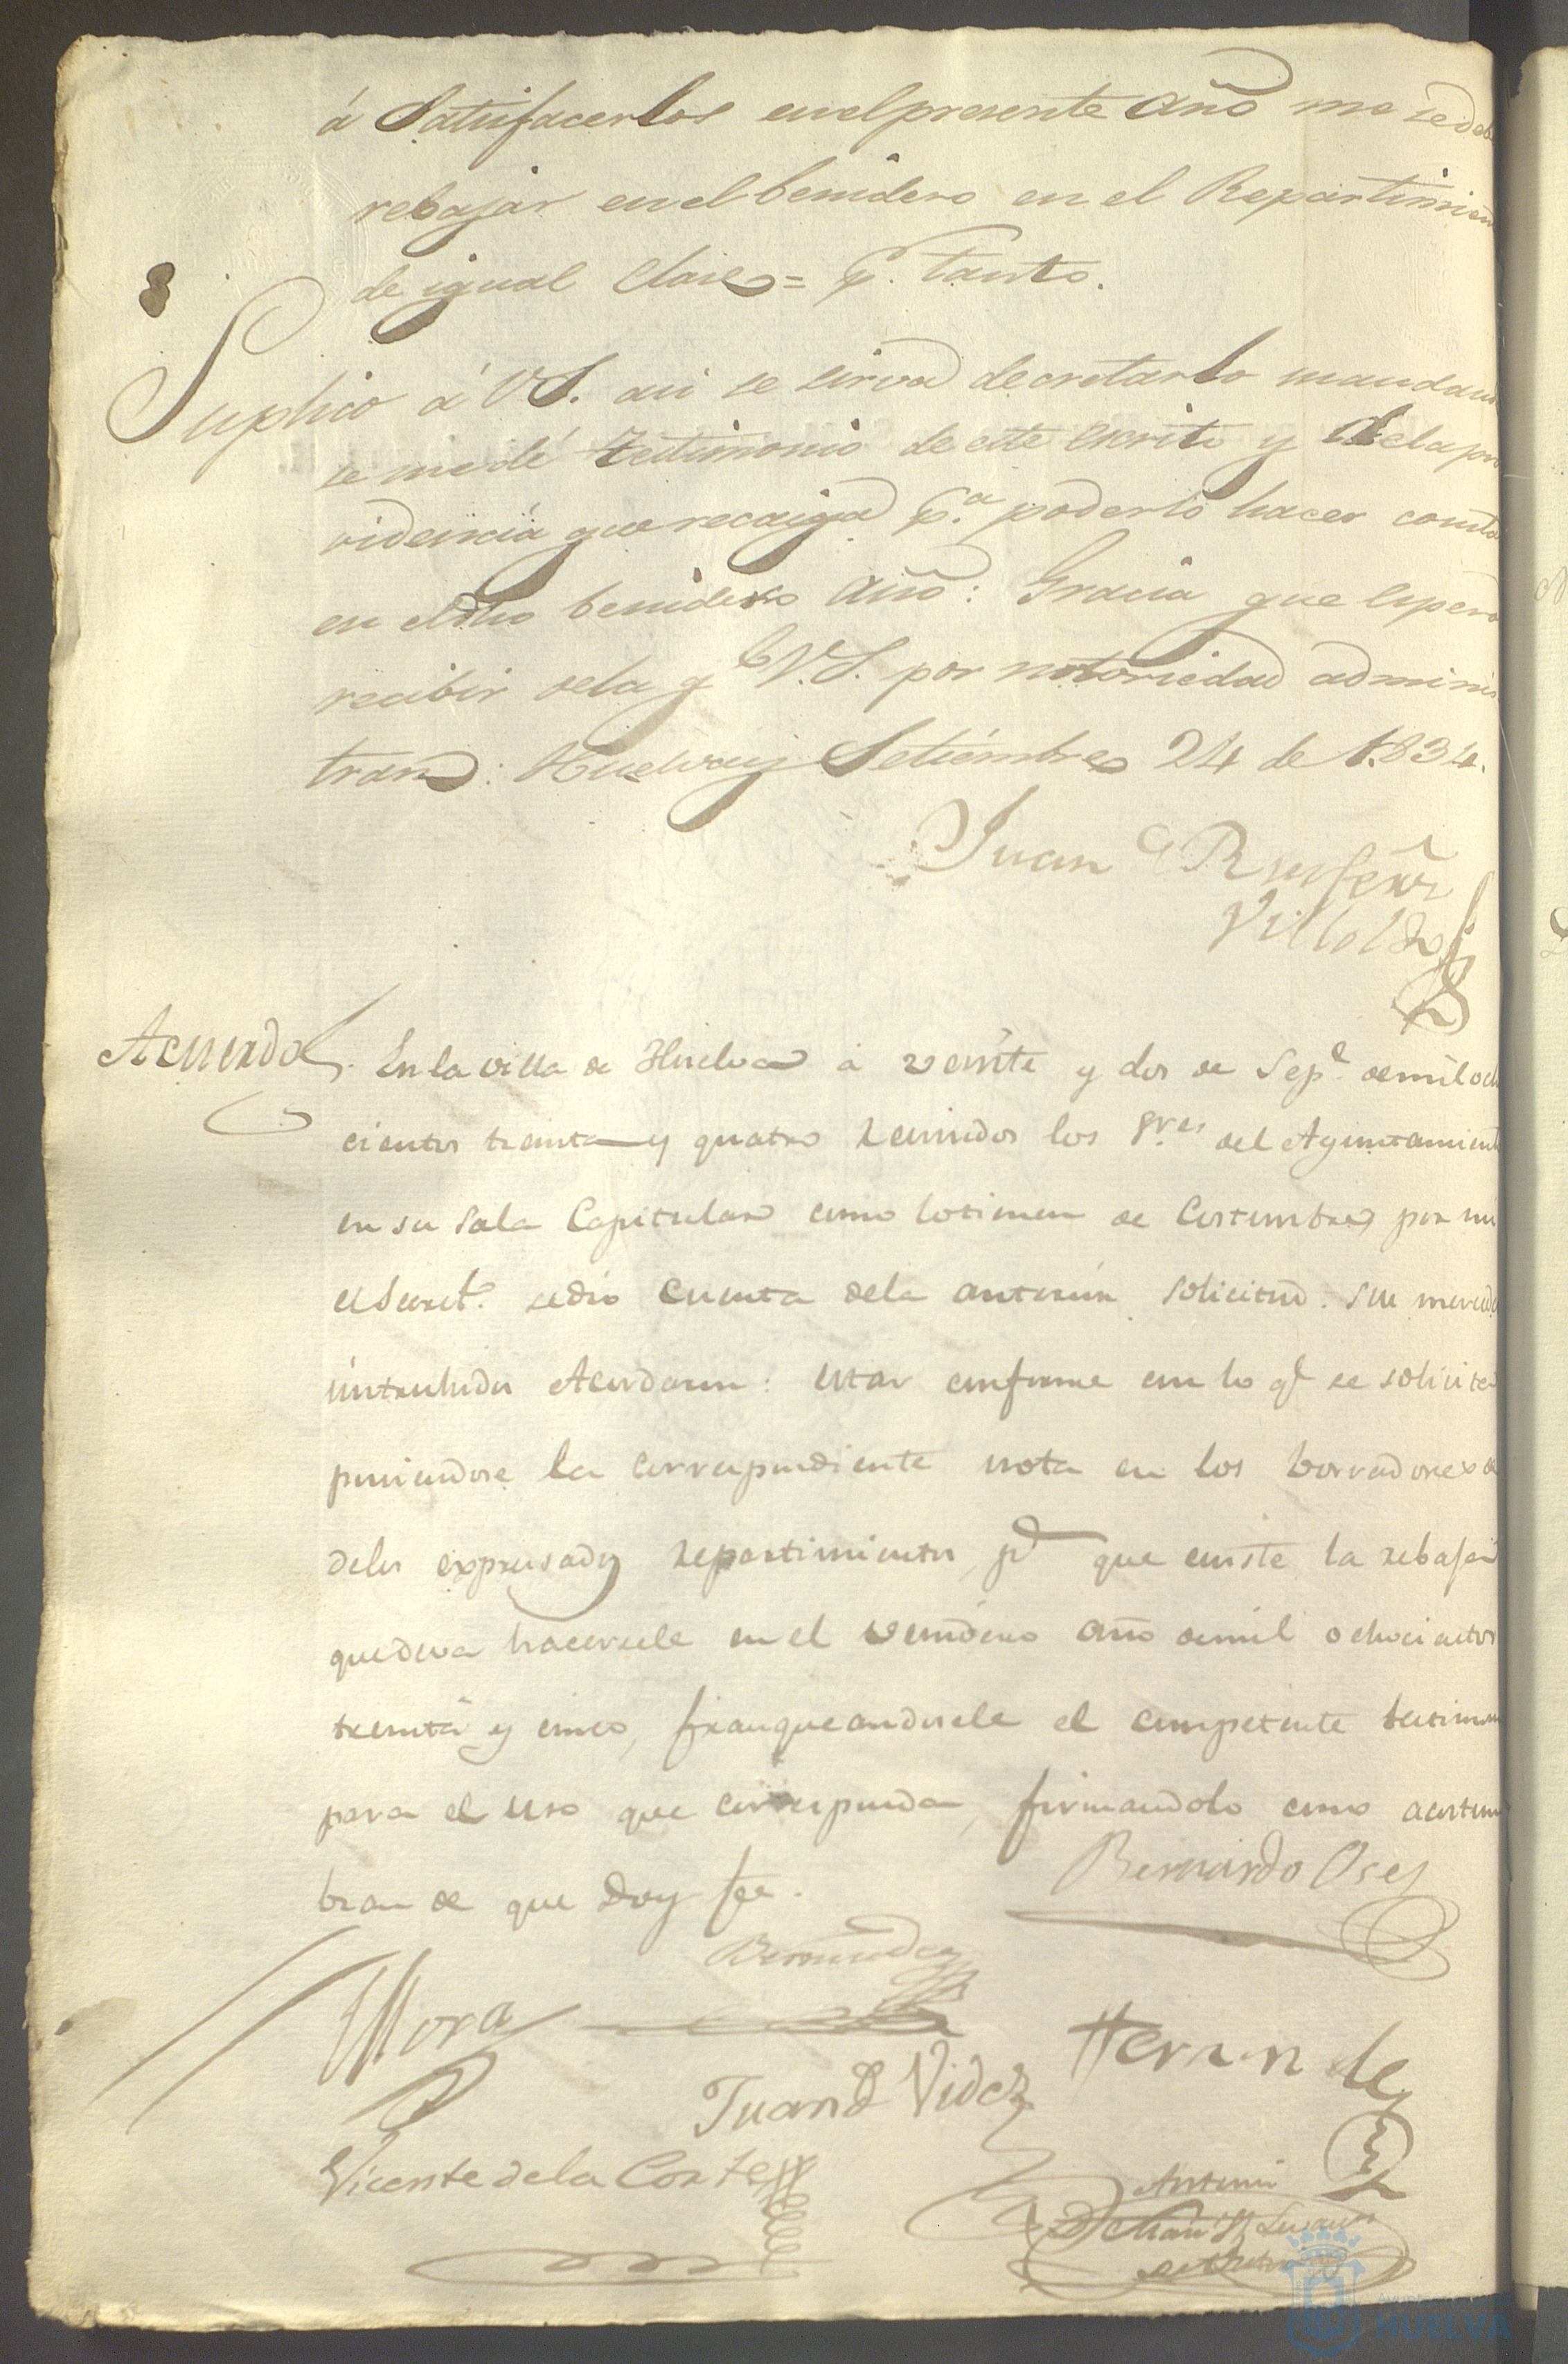 á Satisfacerlos en el presente Año me se debe
rebajar en el benidero en el Repartimien
de igual Clase = P.r tanto.
Suplico á V.S. asi se sirva decretarlo mandan
se me dé testimonio de este escrito y de la pro
videncia que recaiga p.a poderlo hacer consta
en el dho benidero Año: Gracia que espera
recibir de la y V.S. por notoriedad adminis
tran: Huelva y Setiémbre 24 de 1834.
Juan
Villoldo
Acuerdo. En la villa de Huelva á veinte y dos de Sep.e de mil och
cientos treinta y quatro reunidos los Sres del Ayuntamient
en su Sala Capitular como lo tienen de Costumbre, por mi
el Secret.o se dió cuenta de la anterior solicitud. Sus mercedes
intruhidos Acordaron: estar conforme con lo q.e se solicita
poniendose la correspondiente nota en los borradores
delos expresados repartimientos, p.a que conste la rebaja
que deva hacersele en el venidero año de mil ochocientos
treinta y cinco, franqueandosele el competente testimon
para el uso que corresponda, firmandolo como acostum
bran de que doy fee.
Bernardo Oses
Bermudez
Mora
Hernandez
Juan Videz
Vicente de la Corte
Antonio
HUELVA